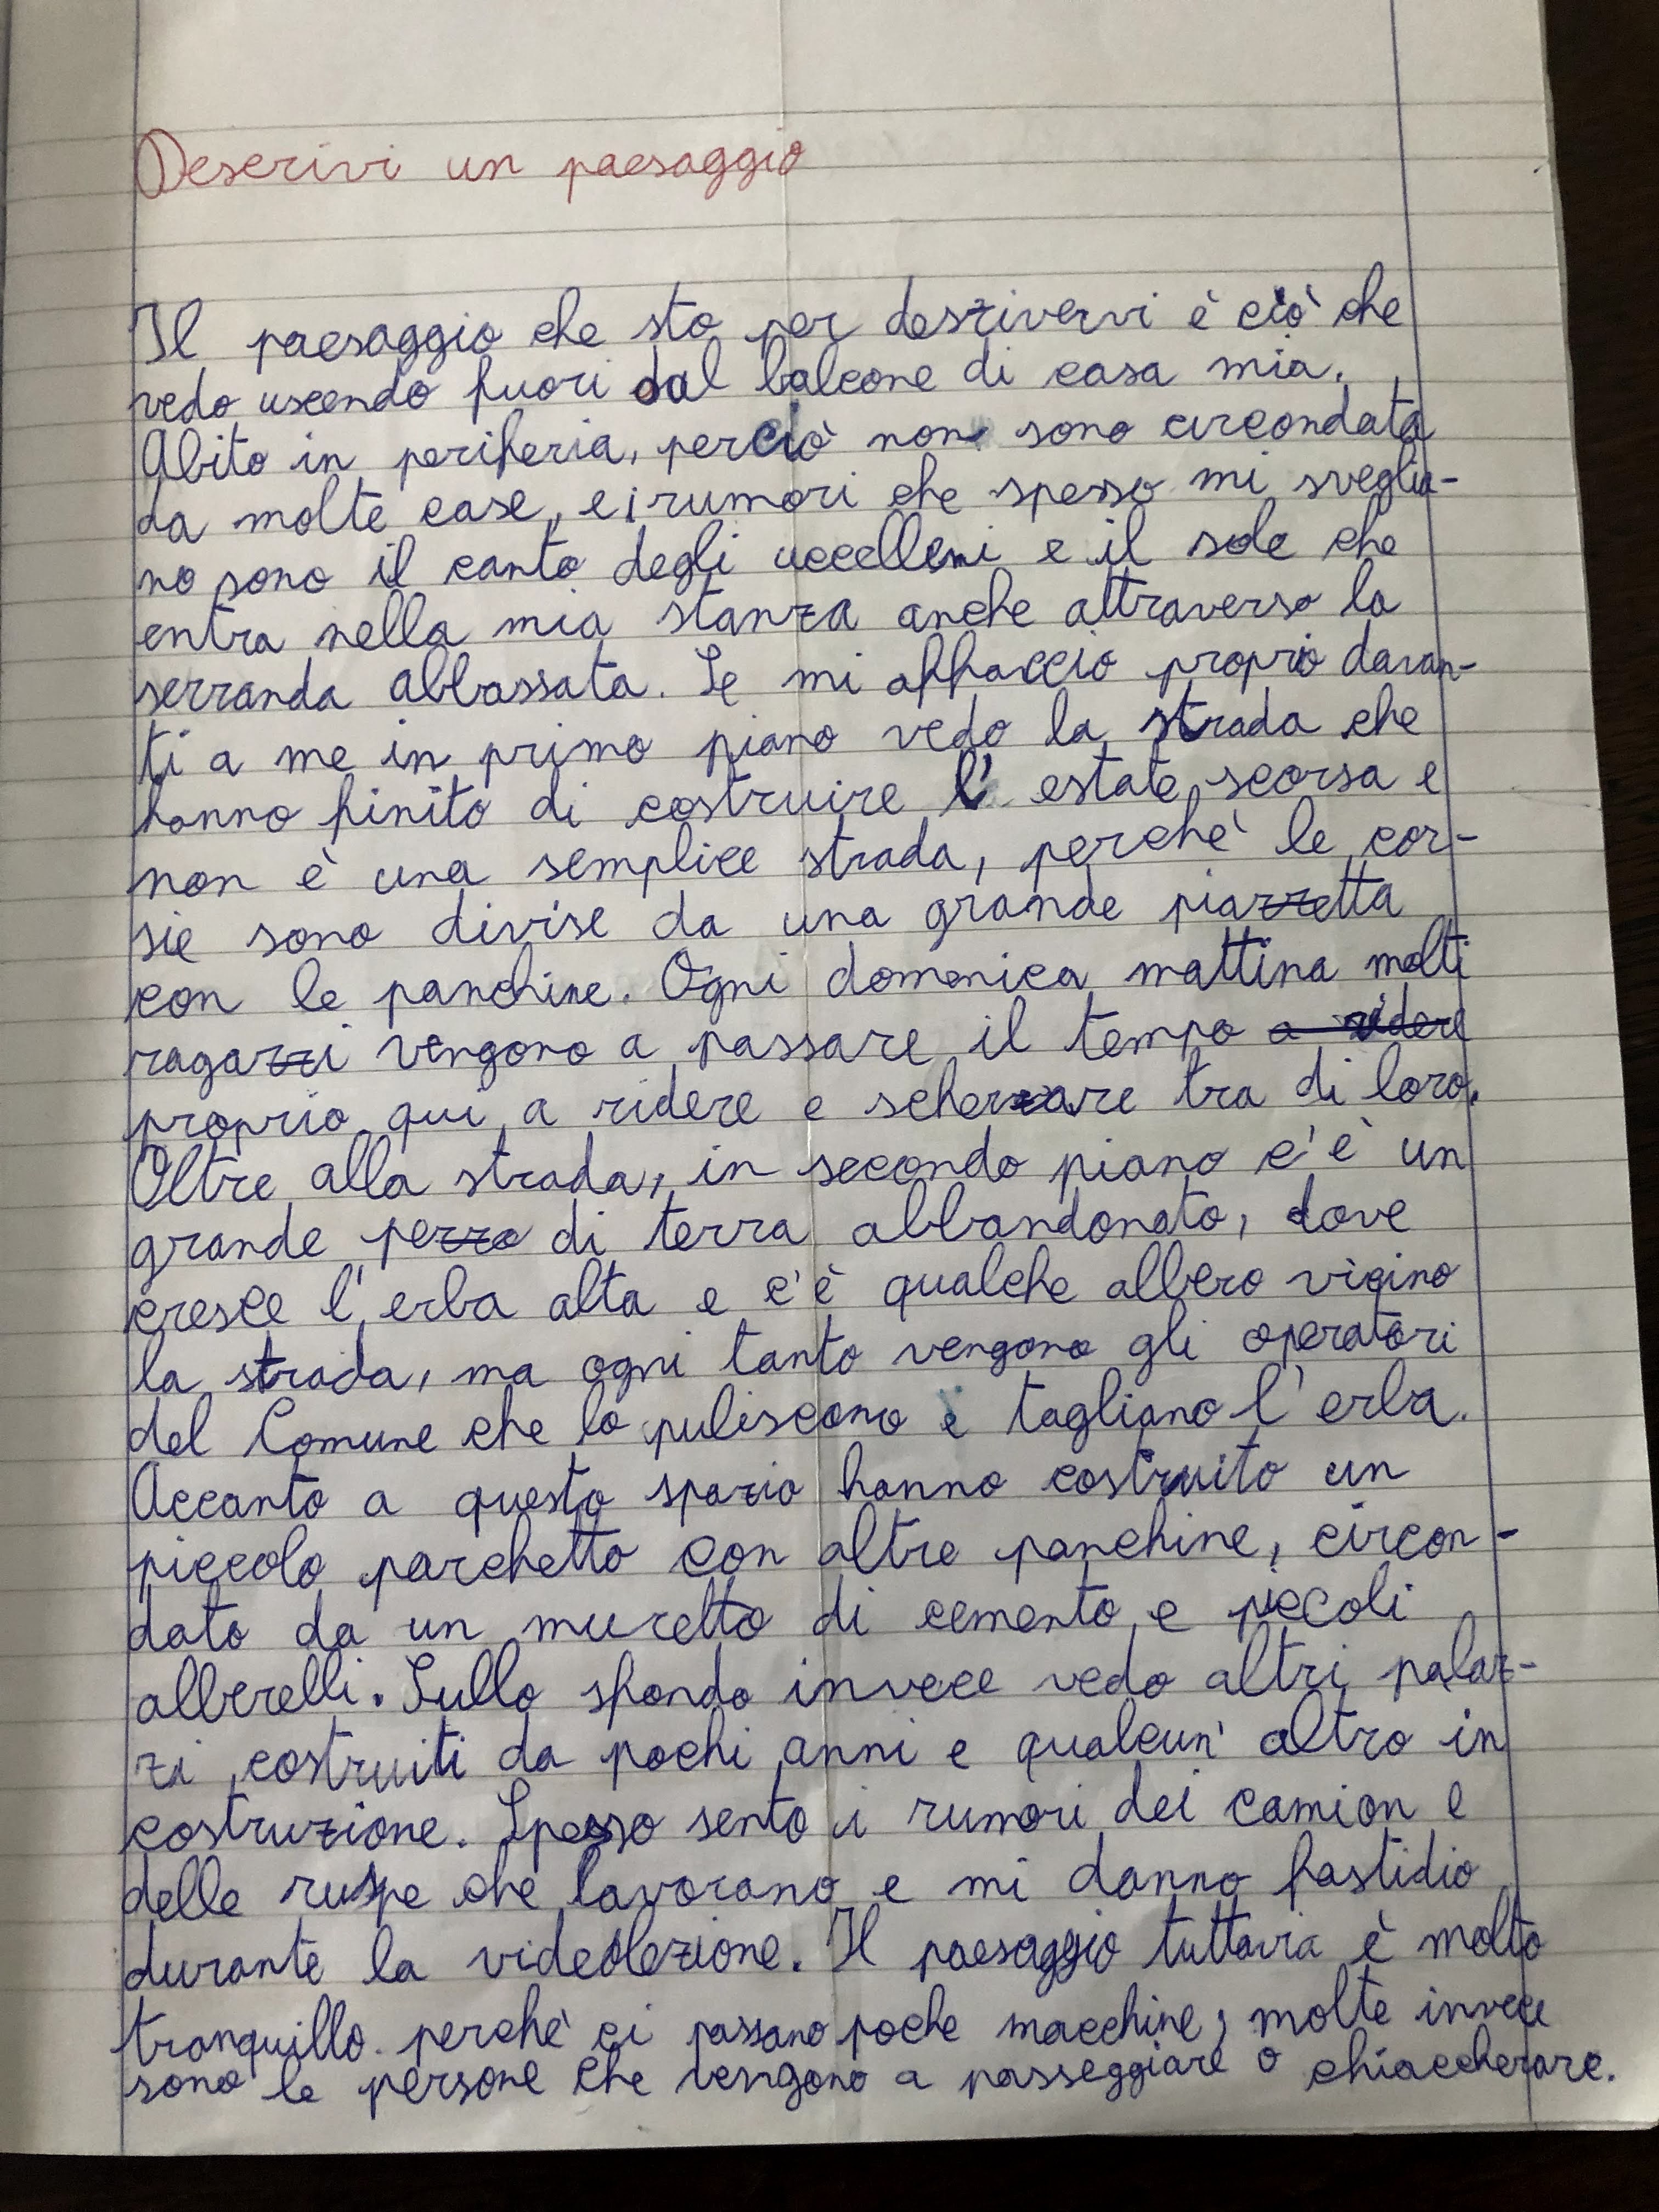 Descrivi un paesaggio
Il paesaggio che sto per descrivervi è ciò che
vedo uscendo fuori dal balcone di casa mia.
Abito in periferia, perciò non sono circondata
da molte case, e i rumori che spesso mi sveglia-
no sono il canto degli uccellini e il sole che
entra nella mia stanza anche attraverso la
serranda abbassata. Se mi affaccio proprio davan-
ti a me in primo piano vedo la strada che
hanno finito di costruire l'estate scorsa e
non è una semplice strada, perchè le cor-
sie sono divise da una grande piazzetta
con le panchine. Ogni domenica mattina molti
ragazzi vengono a passare il tempo a ridere
proprio qui a ridere e scherzare tra di loro.
Oltre alla strada, in secondo piano c'è un
grande pezzo di terra abbandonato, dove
cresce l'erba alta e c'è qualche albero vicino
la strada, ma ogni tanto vengono gli operatori
del Comune che lo puliscono e tagliano l'erba.
Accanto a questo spazio hanno costruito un
piccolo parchetto con altre panchine, circon-
dato da un muretto di cemento e piccoli
alberelli. Sullo sfondo invece vedo altri palaz-
zi costruiti da pochi anni e qualcun'altro in
costruzione. Spesso sento i rumori dei camion e
delle ruspe che lavorano e mi danno fastidio
durante la videolezione. Il paesaggio tuttavia è molto
tranquillo perchè ci passano poche macchine, molte invece
sono le persone che vengono a passeggiare o chiaccherare.